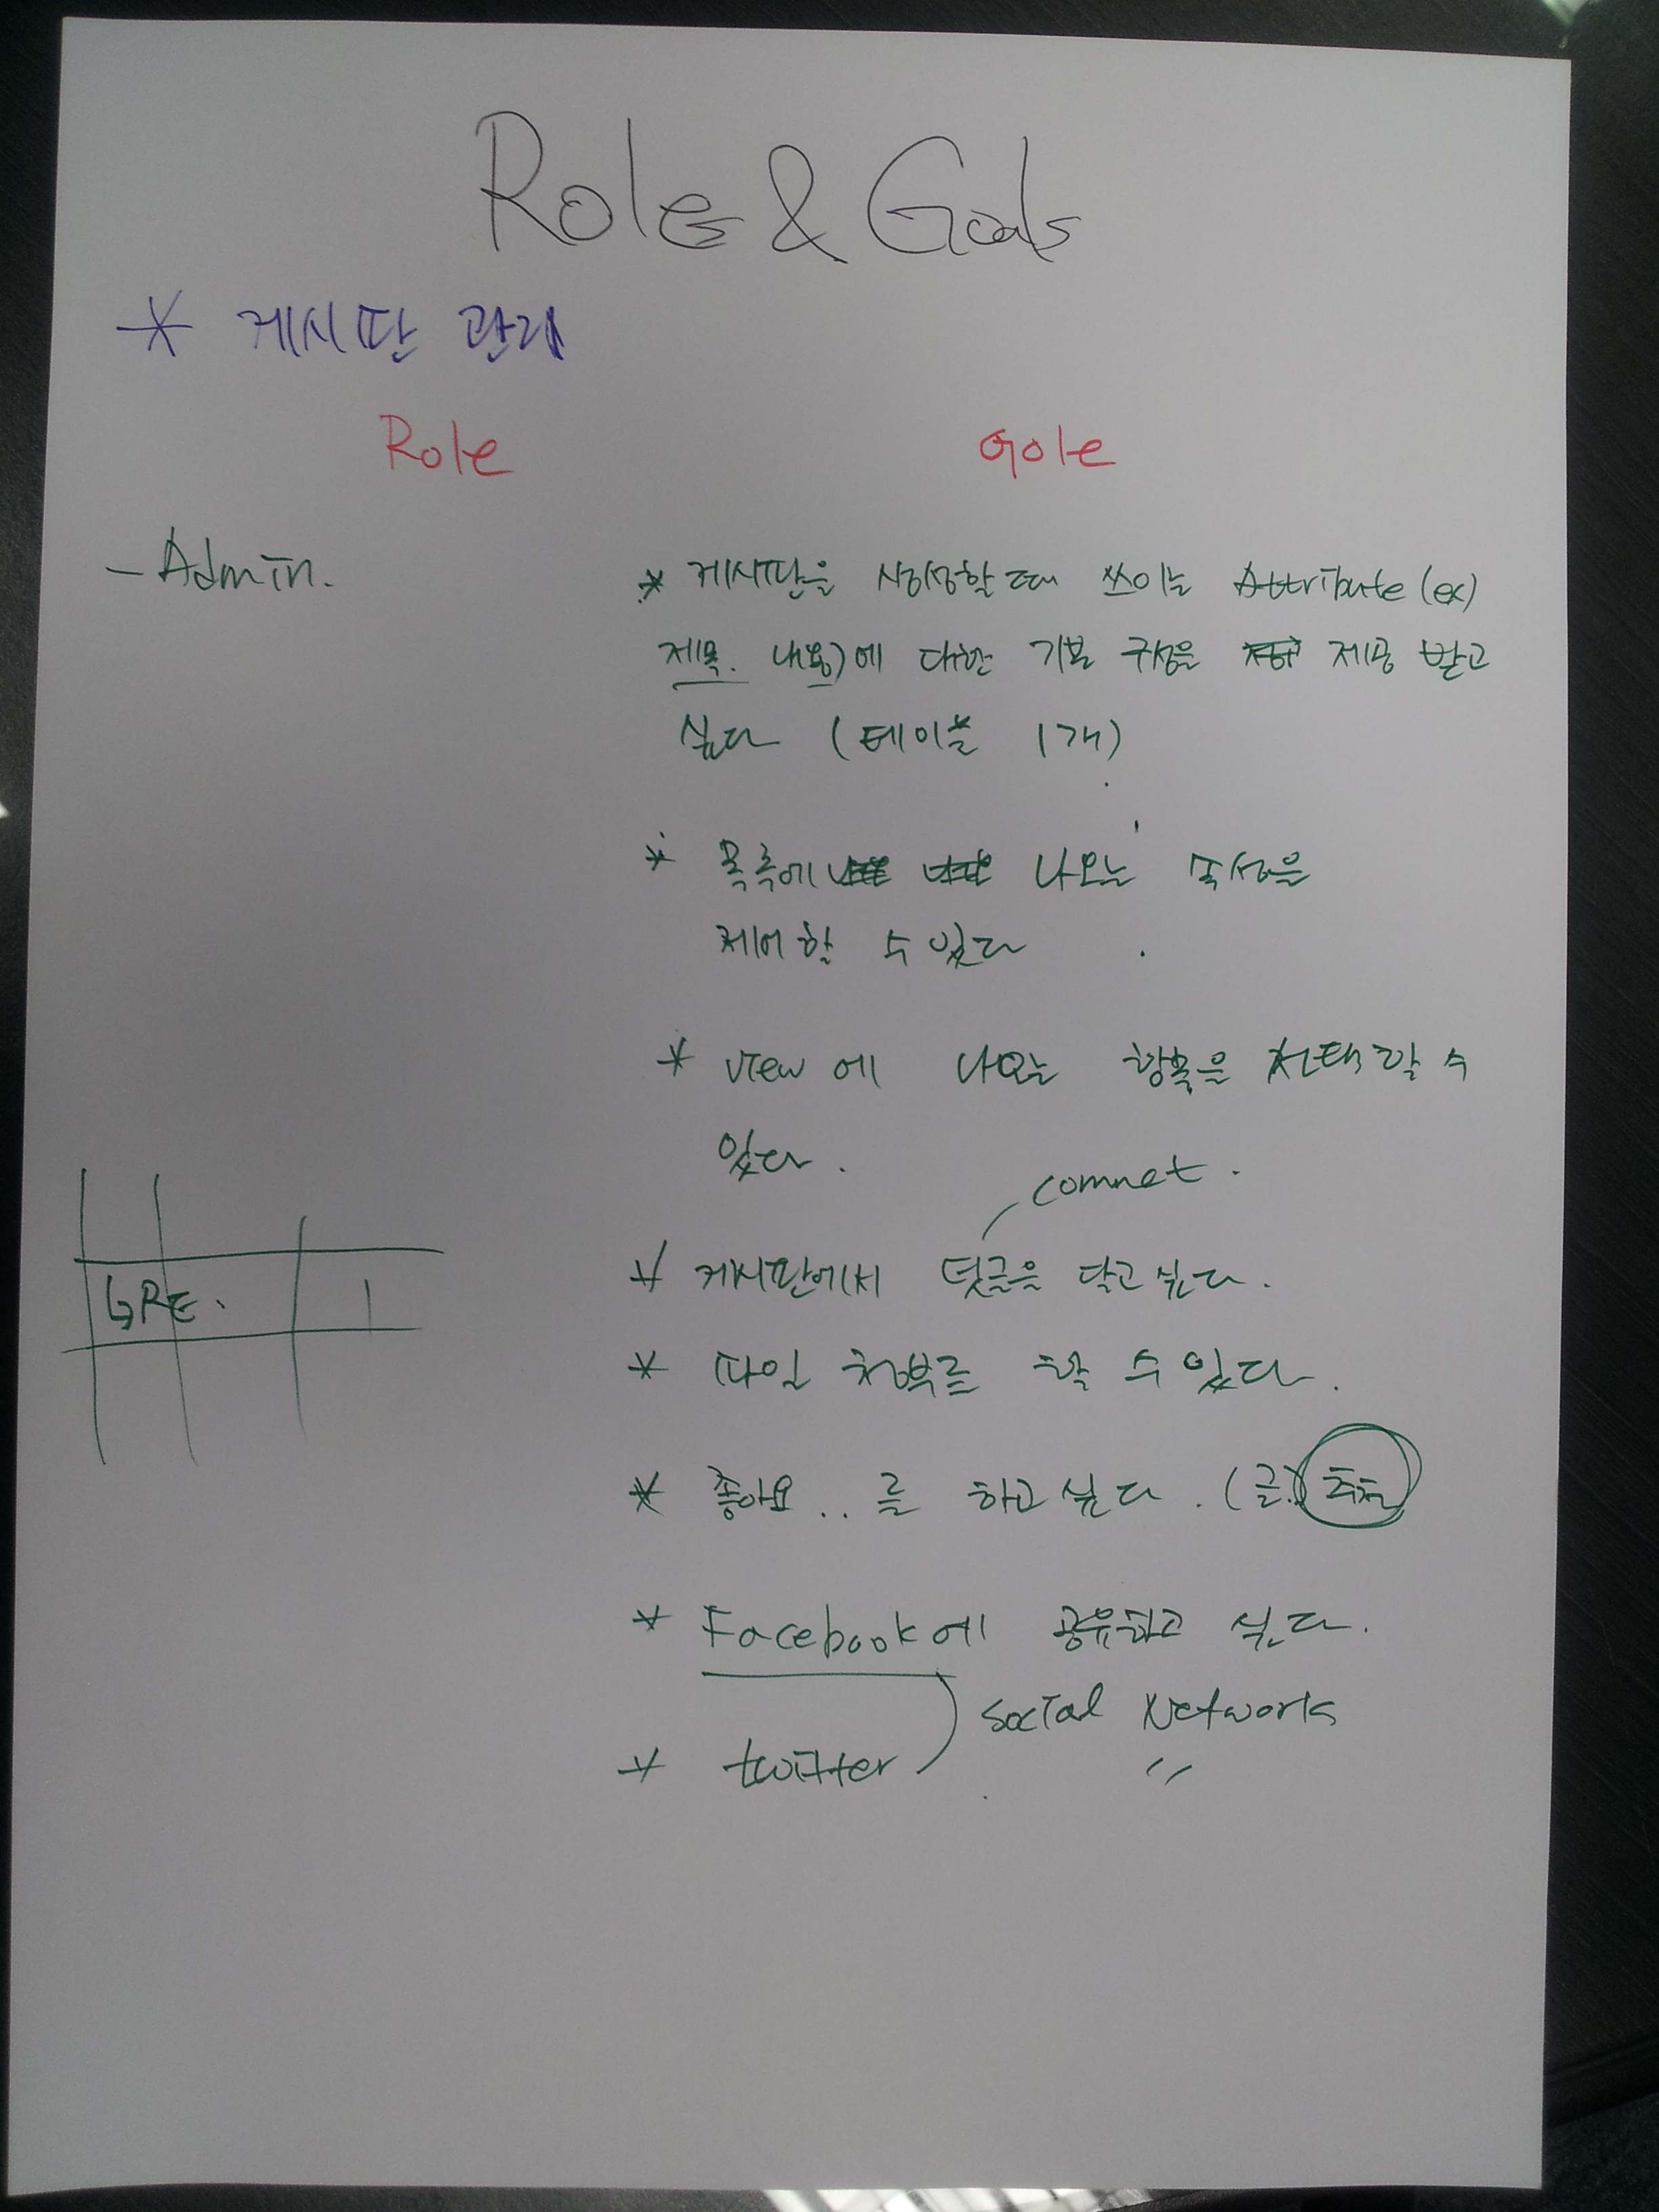 Role & Goals
* 게시판 관리
Role Gole
- Admin.
* 게시판을 생성할 때 쓰이는 Attribute (ex)
제목. 내용)에 대한 기본 구성을 제공 받고
싶다 (테이블 1개)
* 목록에 나오는 속성을
제어할 수 있다
* view에 나오는 항목을 선택할 수
있다.
comnet.
* 게시판에서 덧글을 달고 싶다.
↳RE. 1
* 파일 첨부를 할 수 있다.
* 좋아요.. 를 하고 싶다. (글.) 추천
* Facebook에 공유하고 싶다.
Social Networks
* twitter 〃